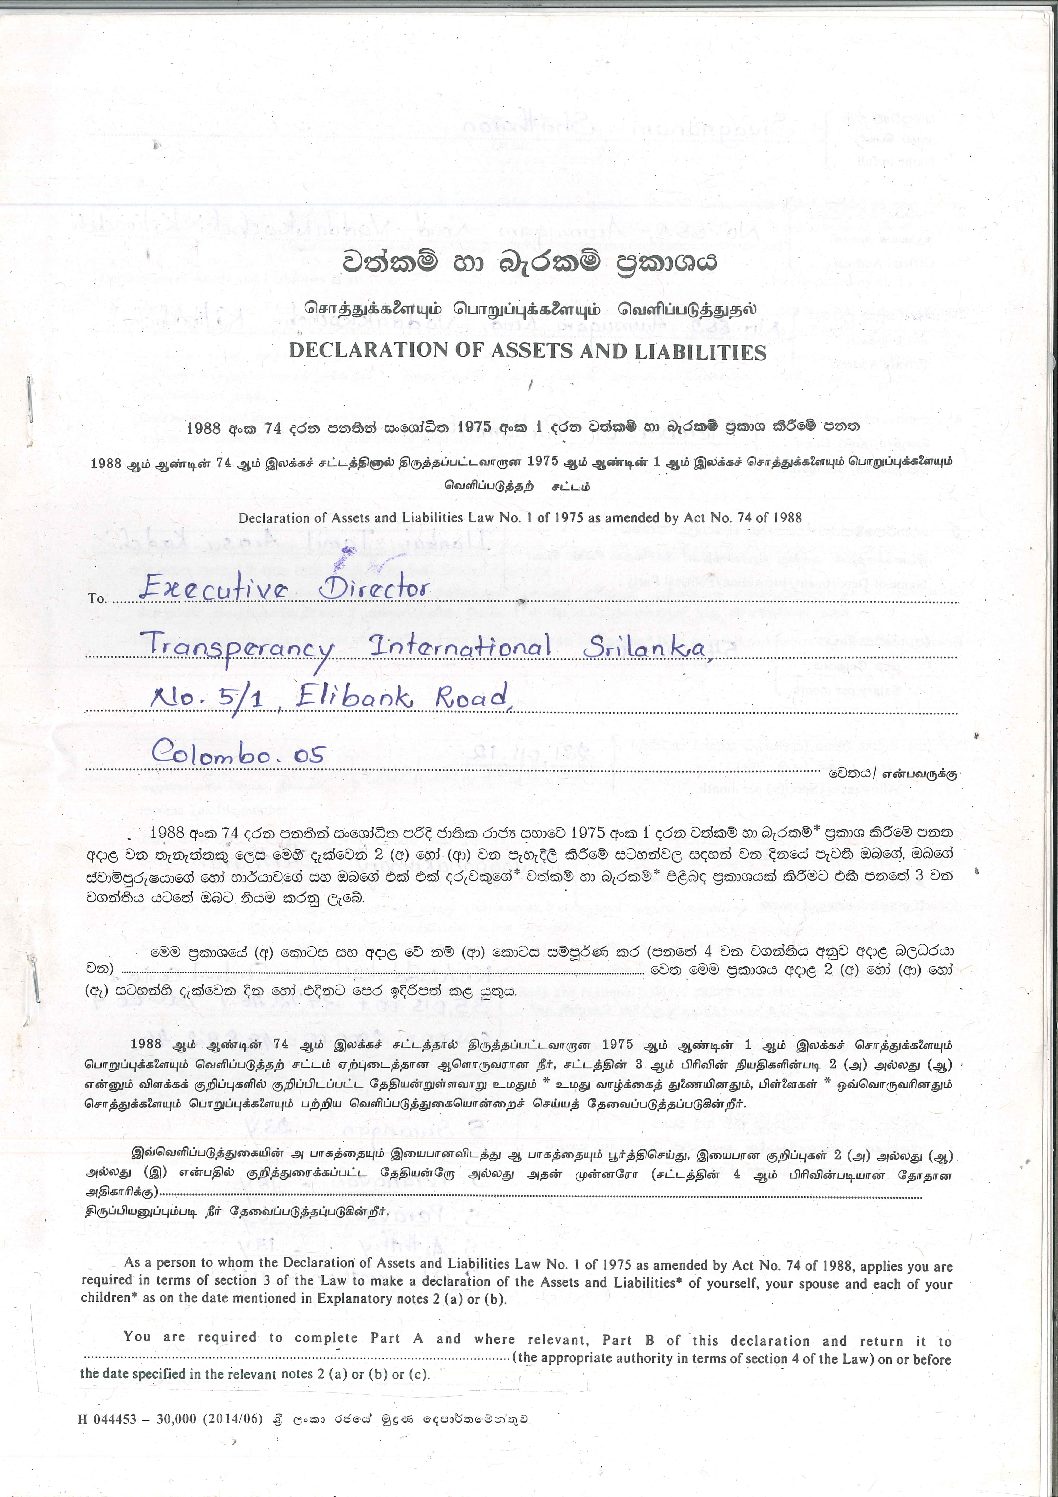 වත්කම් හා බැරකම් ප්‍රකාශය
சொத்துக்களையும் பொறுப்புக்களையும் வெளிப்படுத்துதல்
DECLARATION OF ASSETS AND LIABILITIES
1988 අංක 74 දරන පනතින් සංශෝධිත 1975 අංක 1 දරන වත්කම් හා බැරකම් ප්‍රකාශ කිරීමේ පනත
1988 ஆம் ஆண்டின் 74 ஆம் இலக்கச் சட்டத்தினால் திருத்தப்பட்டவாறான 1975 ஆம் ஆண்டின் 1 ஆம் இலக்கச் சொத்துக்களையும் பொறுப்புக்களையும்
வெளிப்படுத்தற் சட்டம்
Declaration of Assets and Liabilities Law No. 1 of 1975 as amended by Act No. 74 of 1988
To. Executive Director
Transperancy International Srilanka,
No. 5/1, Elibank Road,
Colombo. 05
වෙතය/ என்பவருக்கு
1988 අංක 74 දරන පනතින් සංශෝධිත පරිදි ජාතික රාජ්‍ය සභාවේ 1975 අංක 1 දරන වත්කම් හා බැරකම්* ප්‍රකාශ කිරීමේ පනත
අදාළ වන තැනැත්තකු ලෙස මෙහි දැක්වෙන 2 (අ) හෝ (ආ) වන පැහැදිලි කිරීමේ සටහන්වල සඳහන් වන දිනයේ පැවති ඔබගේ, ඔබගේ
ස්වාමිපුරුෂයාගේ හෝ භාර්යාවගේ සහ ඔබගේ එක් එක් දරුවකුගේ* වත්කම් හා බැරකම්* පිළිබඳ ප්‍රකාශයක් කිරීමට එකී පනතේ 3 වන
වගන්තිය යටතේ ඔබට නියම කරනු ලැබේ.
මෙම ප්‍රකාශයේ (අ) කොටස සහ අදාළ වේ නම් (ආ) කොටස සම්පූර්ණ කර (පනතේ 4 වන වගන්තිය අනුව අදාළ බලධරයා
වන) වෙත මෙම ප්‍රකාශය අදාළ 2 (අ) හෝ (ආ) හෝ
(ඇ) සටහන්හි දැක්වෙන දින හෝ එදිනට පෙර ඉදිරිපත් කළ යුතුය.
1988 ஆம் ஆண்டின் 74 ஆம் இலக்கச் சட்டத்தால் திருத்தப்பட்டவாறான 1975 ஆம் ஆண்டின் 1 ஆம் இலக்கச் சொத்துக்களையும்
பொறுப்புக்களையும் வெளிப்படுத்தற் சட்டம் ஏற்புடைத்தான ஆளொருவரான நீர், சட்டத்தின் 3 ஆம் பிரிவின் நியதிகளின்படி 2 (அ) அல்லது (ஆ)
என்னும் விளக்கக் குறிப்புகளில் குறிப்பிடப்பட்ட தேதியன்றுள்ளவாறு உமதும் * உமது வாழ்க்கைத் துணையினதும், பிள்ளைகள் * ஒவ்வொருவரினதும்
சொத்துக்களையும் பொறுப்புக்களையும் பற்றிய வெளிப்படுத்துகையொன்றைச் செய்யத் தேவைப்படுத்தப்படுகின்றீர்.
இவ்வெளிப்படுத்துகையின் அ பாகத்தையும் இயைபானவிடத்து ஆ பாகத்தையும் பூர்த்திசெய்து, இயைபான குறிப்புகள் 2 (அ) அல்லது (ஆ)
அல்லது (இ) என்பதில் குறித்துரைக்கப்பட்ட தேதியன்றோ அல்லது அதன் முன்னரோ (சட்டத்தின் 4 ஆம் பிரிவின்படியான தோதான
அதிகாரிக்கு)
திருப்பியனுப்பும்படி நீர் தேவைப்படுத்தப்படுகின்றீர்.
As a person to whom the Declaration of Assets and Liabilities Law No. 1 of 1975 as amended by Act No. 74 of 1988, applies you are
required in terms of section 3 of the Law to make a declaration of the Assets and Liabilities* of yourself, your spouse and each of your
children* as on the date mentioned in Explanatory notes 2 (a) or (b).
You are required to complete Part A and where relevant, Part B of this declaration and return it to
(the appropriate authority in terms of section 4 of the Law) on or before
the date specified in the relevant notes 2 (a) or (b) or (c).
H 044453 – 30,000 (2014/06) ශ්‍රී ලංකා රජයේ මුද්‍රණ දෙපාර්තමේන්තුව